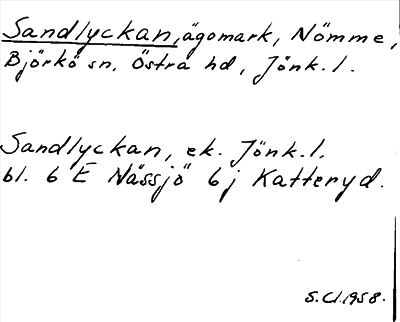 Sandlyckan, ägomark, Nömme,
Björkö sn, Östra hd, Jönk. l.
Sandlyckan, ek. Jönk. l.
bl. 6 E Nässjö 6 j Katteryd.
S. Cl. 1958.